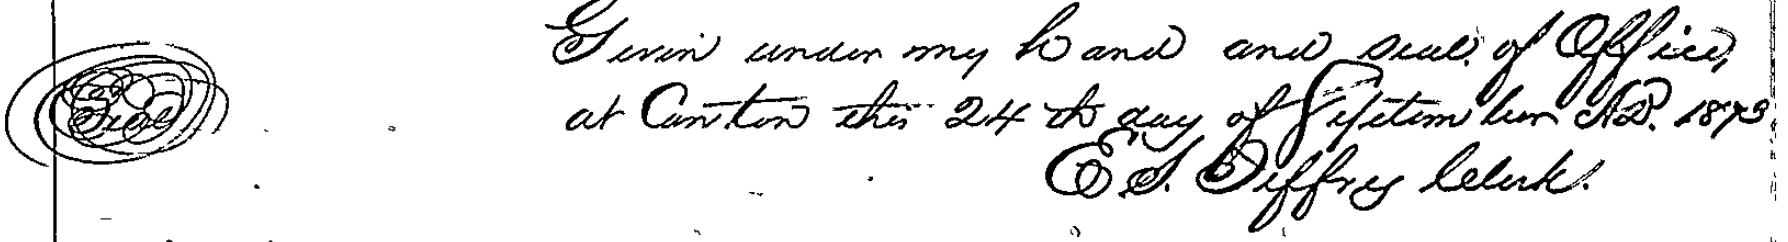 Given under my hand and seal of Office,
at Canton this 24th day of September A.D. 1873
Seal
E. S. Jeffrey Clerk.